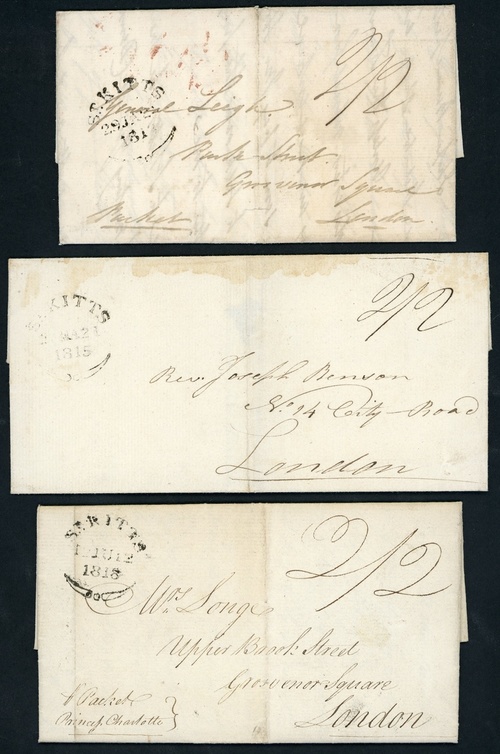 ST KITTS
181
2/2
General Leigh
Park Street
Grovenor Square
Packet London.
ST KITTS
1815
2/2
Revd. Joseph Benson
No. 14 City-Road
London
ST KITTS
1818
2/2
Mrs. Long
Upper Brook Street
Grosvenor Square
London
Packet
Princess Charlotte